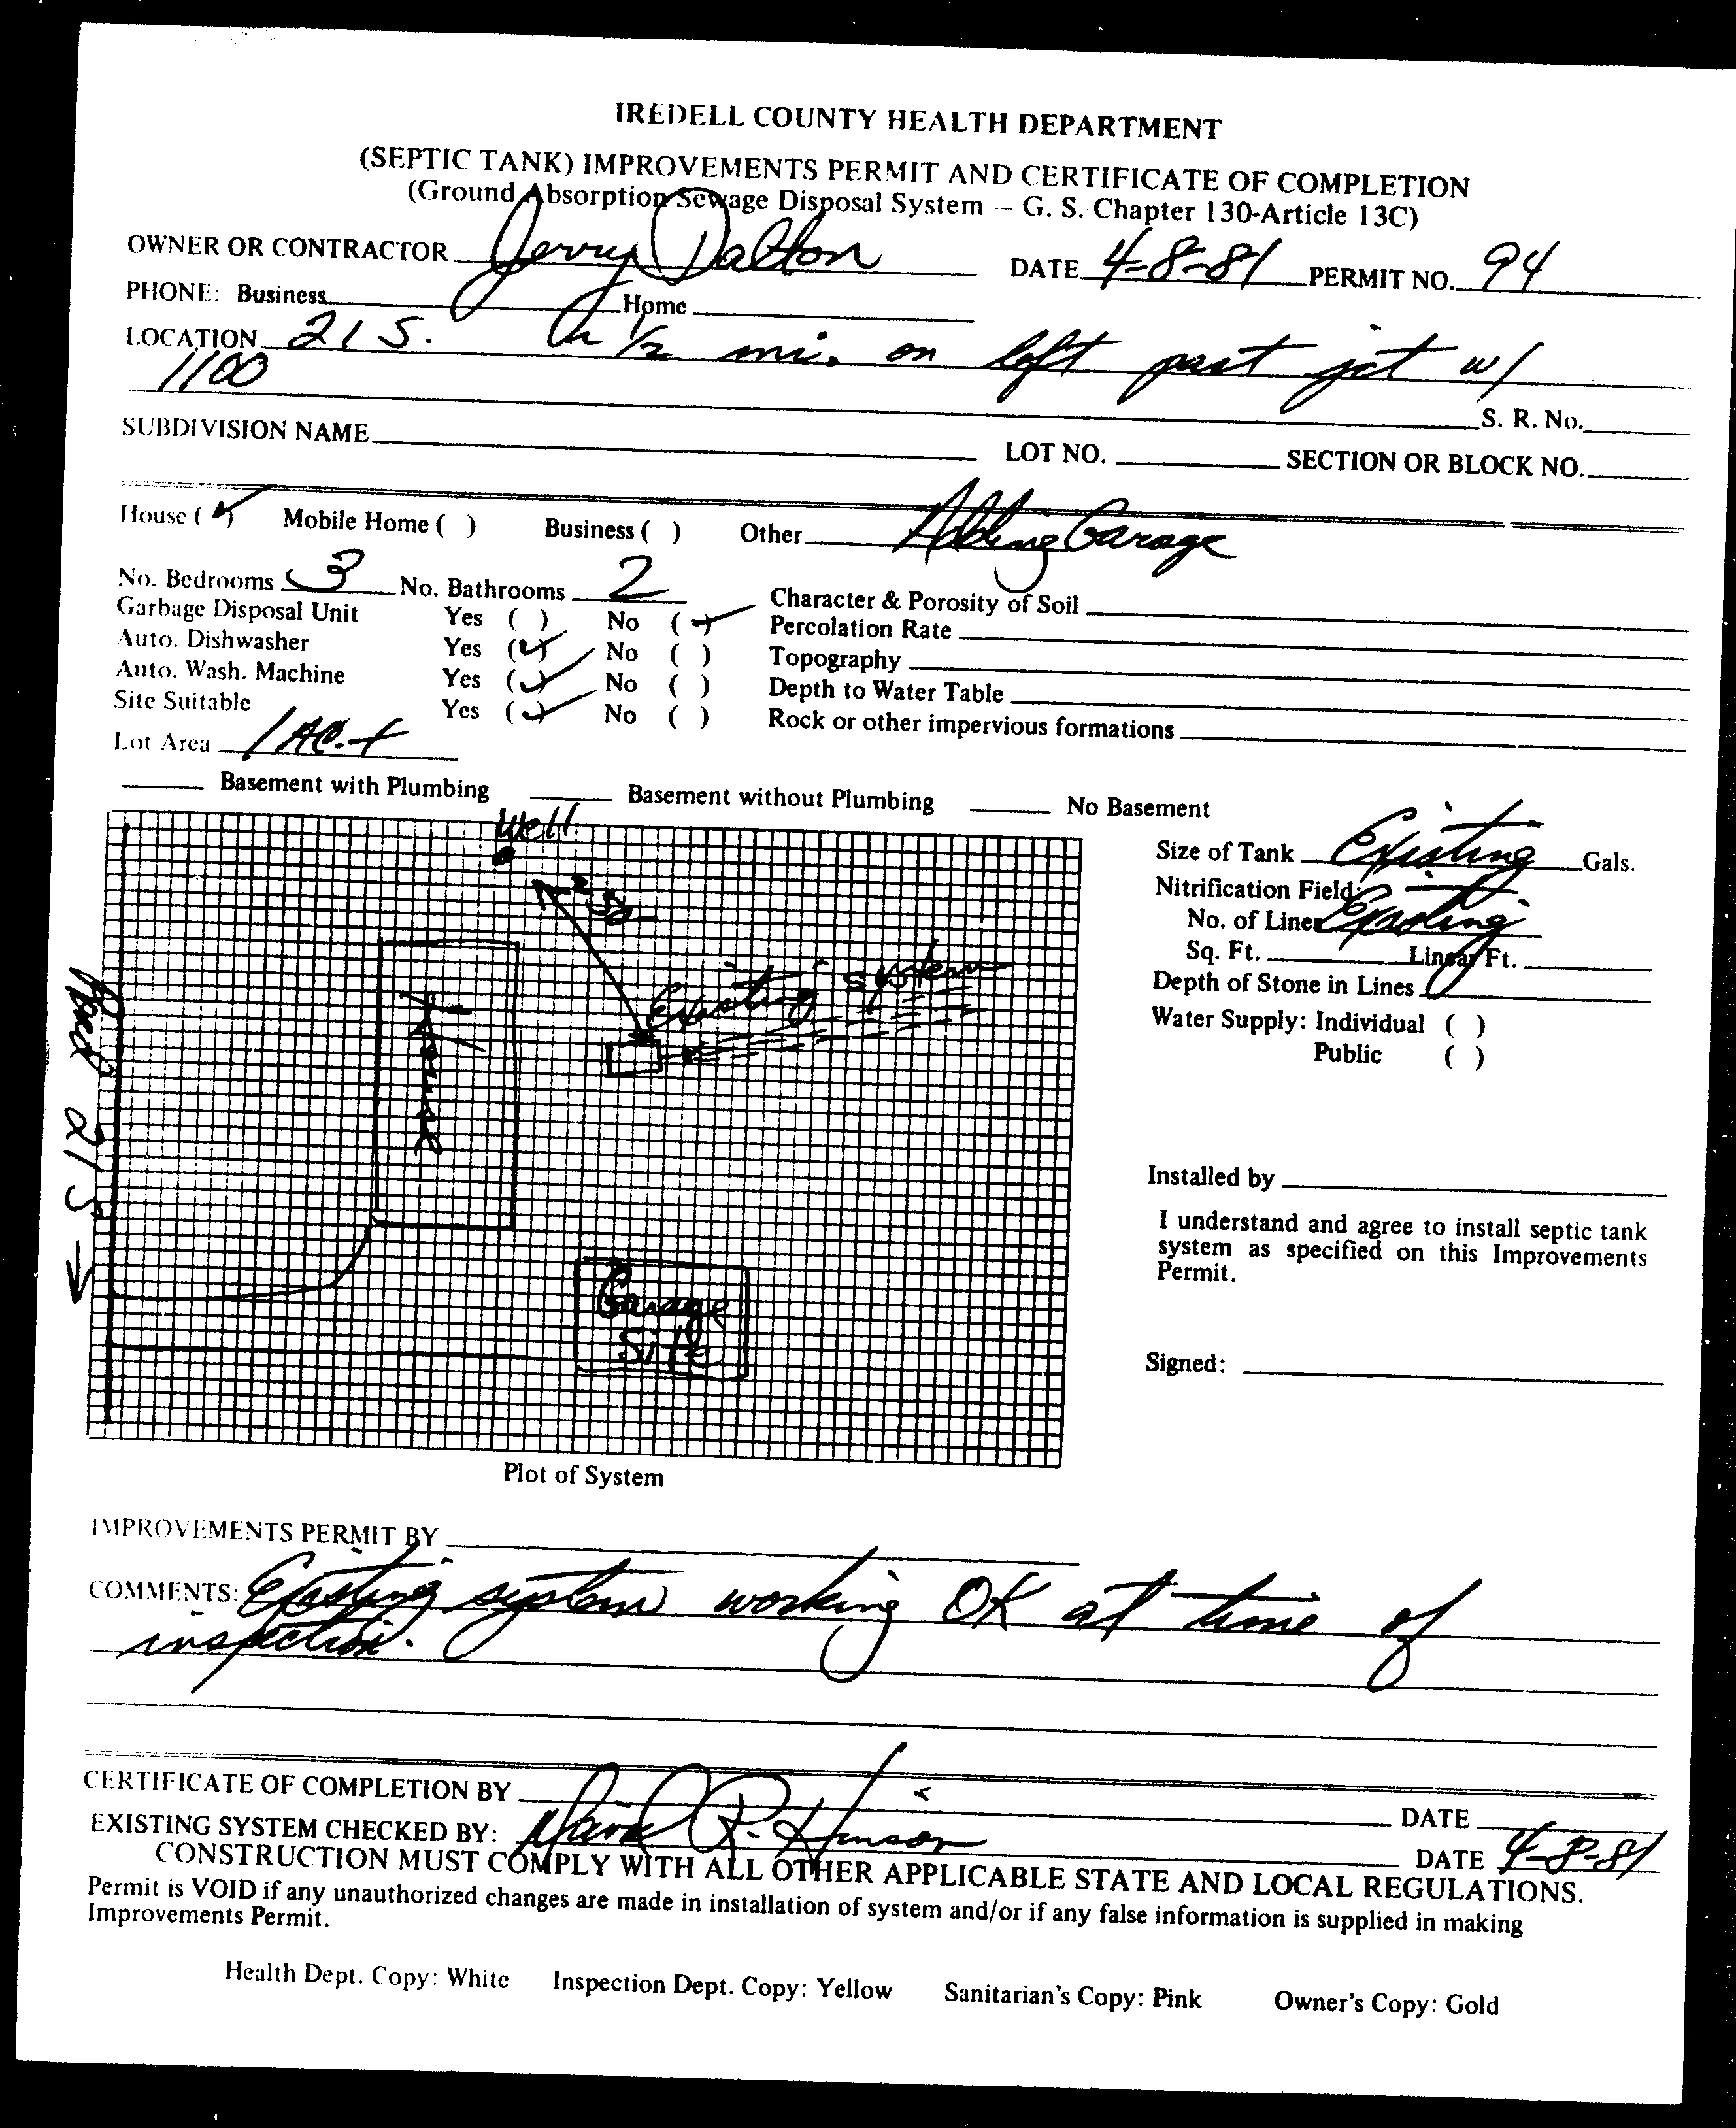 IREDELL COUNTY HEALTH DEPARTMENT
(SEPTIC TANK) IMPROVEMENTS PERMIT AND CERTIFICATE OF COMPLETION
(Ground Absorption Sewage Disposal System -- G. S. Chapter 130-Article 13C)
OWNER OR CONTRACTOR Jerry Dalton DATE 4-8-81 PERMIT NO. 94
PHONE: Business Home
LOCATION 21 S. 1/2 mi. on left past jct w/
1100 S. R. No.
SUBDIVISION NAME LOT NO. SECTION OR BLOCK NO.
House (✓) Mobile Home ( ) Business ( ) Other Adding Garage
No. Bedrooms 3 No. Bathrooms 2 Character & Porosity of Soil
Garbage Disposal Unit Yes ( ) No (✓) Percolation Rate
Auto. Dishwasher Yes (✓) No ( ) Topography
Auto. Wash. Machine Yes (✓) No ( ) Depth to Water Table
Site Suitable Yes (✓) No ( ) Rock or other impervious formations
Lot Area 1 AC. +
Basement with Plumbing Basement without Plumbing No Basement
Well
House
Existing system
Garage
Site
Road 21 S →
Plot of System
Size of Tank Existing Gals.
Nitrification Field:
No. of Lines Existing
Sq. Ft. Linear Ft.
Depth of Stone in Lines
Water Supply: Individual ( )
Public ( )
Installed by
I understand and agree to install septic tank
system as specified on this Improvements
Permit.
Signed:
IMPROVEMENTS PERMIT BY
COMMENTS: Existing system working OK at time of
inspection.
CERTIFICATE OF COMPLETION BY DATE
EXISTING SYSTEM CHECKED BY: David R. Hinson DATE 4-8-81
CONSTRUCTION MUST COMPLY WITH ALL OTHER APPLICABLE STATE AND LOCAL REGULATIONS.
Permit is VOID if any unauthorized changes are made in installation of system and/or if any false information is supplied in making
Improvements Permit.
Health Dept. Copy: White Inspection Dept. Copy: Yellow Sanitarian's Copy: Pink Owner's Copy: Gold